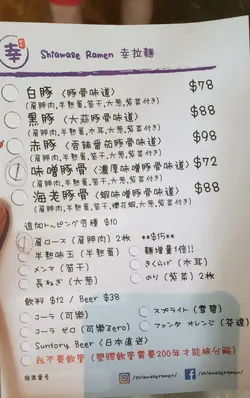 幸 Shiawase Ramen 幸拉麵
白豚 (豚骨味道) $78
(肩脾肉,半熟蛋,筍干,大葱,紫菜付き)
黑豚 (大蒜豚骨味道) $88
(肩脾肉,半熟蛋,木耳,大葱,紫菜付き)
赤豚 (香辣蕃茄豚骨味道) $98
(肩脾肉,半熟蛋,筍干,大葱,紫菜付き)
味噌豚骨 (濃厚味噌豚骨味道) $72
(肩脾肉,半熟蛋,筍干,大葱,紫菜付き)
海老豚骨 (蝦味噌豚骨味道) $88
(肩脾肉,半熟蛋,櫻花蝦,大葱,紫菜付き)
追加トッピング各種 $10
肩ロース (肩脾肉) 2枚 **$15**
半熟味玉 (半熟蛋) 麵增量1倍!!
メンマ (筍干) きくらげ (木耳)
長ねぎ (大葱) のり (紫菜) 2枚
飲料 $12 / Beer $38
コーラ (可樂) スプライト (雪碧)
コーラ ゼロ (可樂zero) ファンタ オレンジ (芬達)
Suntory Beer (日本直送)
我不要飲管 (塑膠飲管需要200年才能被分解)
座席番号 /shiawaseramen/ /shiawaseramen/